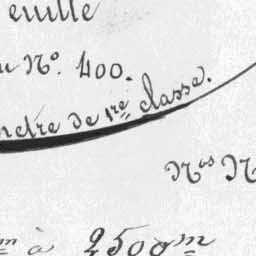 euille
u Nº. 400.
ndre de 1re classe.
Nos N
m à 2500m